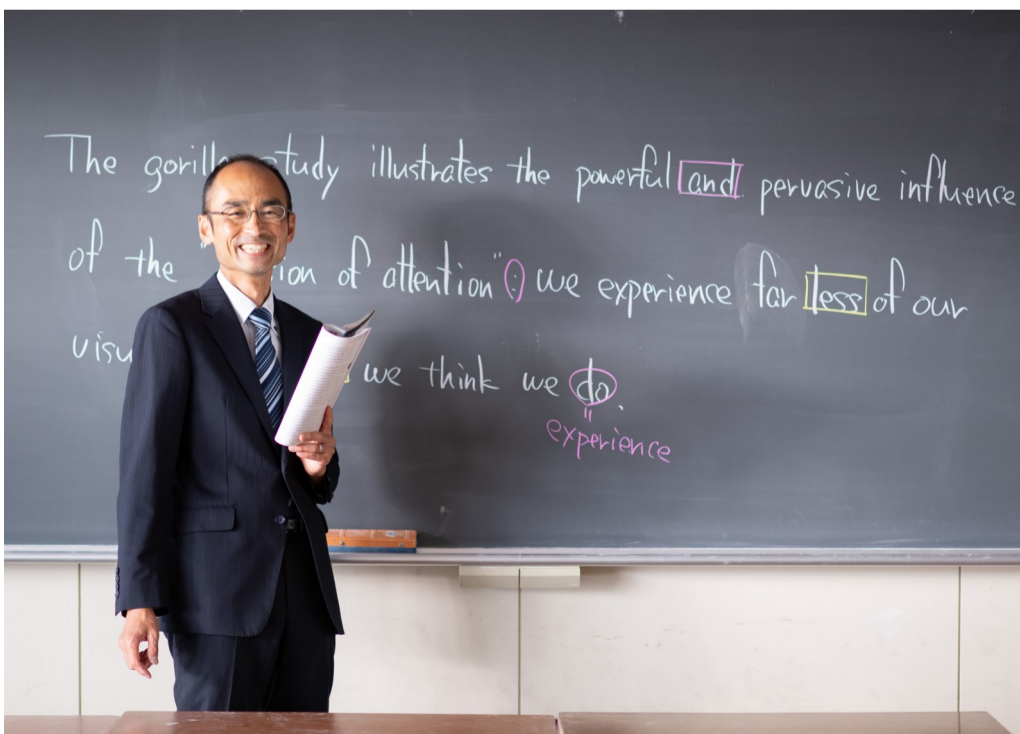 The gorilla study illustrates the powerful and pervasive influence
of the " of attention": we experience far less of our
we think we do.
experience